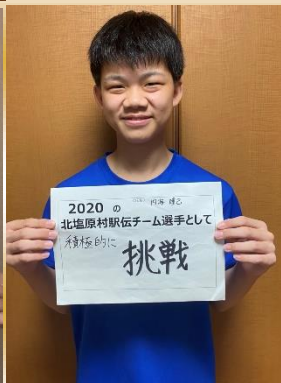 2020 の
北塩原村駅伝チーム選手として
積極的に
挑戦